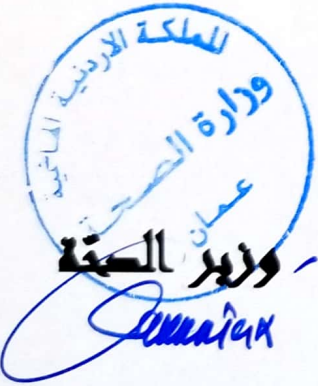 المملكة الاردنية الهاشمية
وزارة الصحة
عمان
وزير الصحة